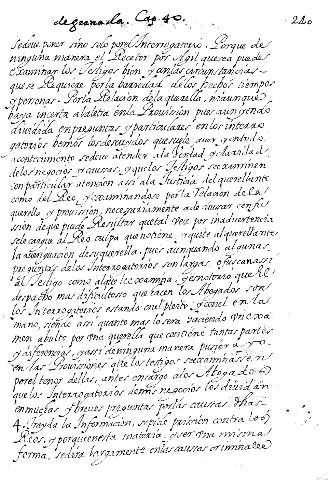 de granada. Cap. 40. 240
se deve poner sino solo por el Interrogatorio. Porque de
ninguna manera el Receptor por Agil que sea puede
examinar los Testigos bien y en las circunstancias
que se Requiere por la variedad de los fechos tiempos
y personas. Por la Relacion de la querella, ni aunque
vaya incerta a la letra en la Provision pues aun yendo
dividida en preguntas y particulares en los interro
gatorios vemos los descuidos que suele aver, y en todo
acontecimiento se deve atender a la Verdad y claridad
de los negocios y causas, y que los Testigos se examinen
con particular atencion assi a la Justicia del querellante
como del Reo, y examinandose por la Relacion de la
querella y provision, necesariamente a de incurrir confu
sion de que puede Resultar que tal vez por inadvertencia
se le cargue al Reo culpa que no tiene, y quite al querellante
la averiguacion de su querella, pues aun quando algunas
preguntas de los Interrogatorios son largas ofuscan assi
al Testigo como al que le examina. Y es notorio que el
despacho mas dificultoso que hacen los Abogados son
los Interrogatorios estando en el pleito, y con el en la
mano, siendo assi quanto mas lo sera haciendo un exa
men abulto por una querella que contiene tantas partes
y diferencias, y assi de ninguna manera
en las Provisiones que los testigos se examinasen
por el tenor dellas, antes encargo a los Abogados
que los Interrogatorios de mis negocios los dividan
en muchas y breves preguntas por las causas dichas
4. Trayda la Informacion, se pide prision contra los
Reos, y porque en esta materia, y ser una misma
forma, se dira largamente en las causas criminales